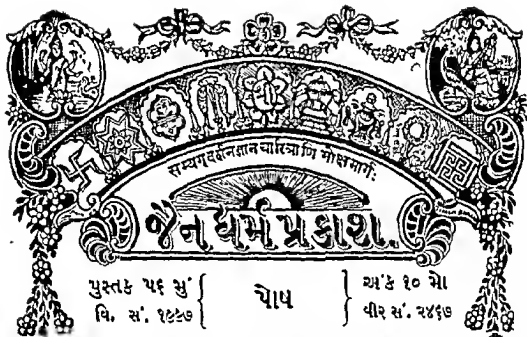 सम्यग्दर्शनज्ञानचारित्राणि मोक्षमार्गः
જૈન ધર્મ પ્રકાશ.
પુસ્તક ૫૬ મું
વિ. સં. ૧૯૯૭
પોષ
અંક ૧૦ મો
વીર સં. ૨૪૬૭